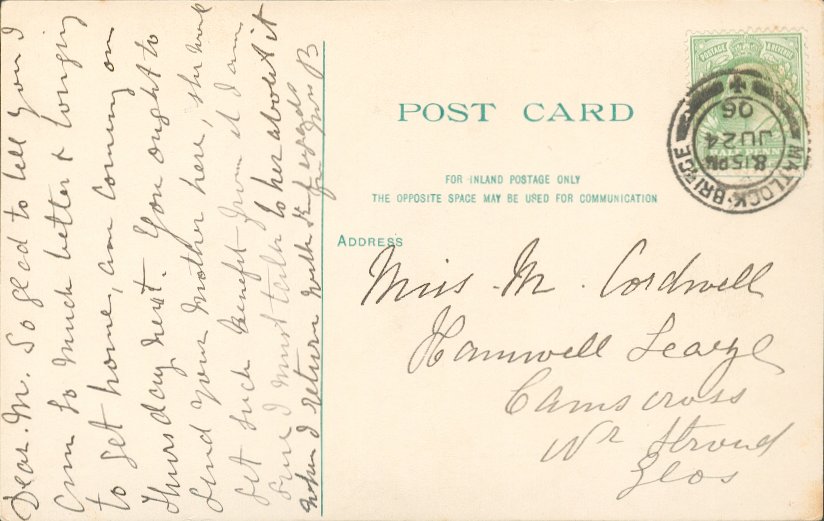 Dear. M. So glad to tell you I
am so much better & longing
to get home, am coming on
Thursday next. You ought to
send your mother here, she would
get such benefit from it I am
sure I must talk to her about it
when I return with kd regds
from B
POST CARD
FOR INLAND POSTAGE ONLY
THE OPPOSITE SPACE MAY BE USED FOR COMMUNICATION
ADDRESS
Miss. M. Cordwell
Hamwell Leaze
Cainscross
Nr Stroud
Glos
POSTAGE REVENUE
HALF PENNY
MATLOCK·BRIDGE
8.15 PM
JU 24
06